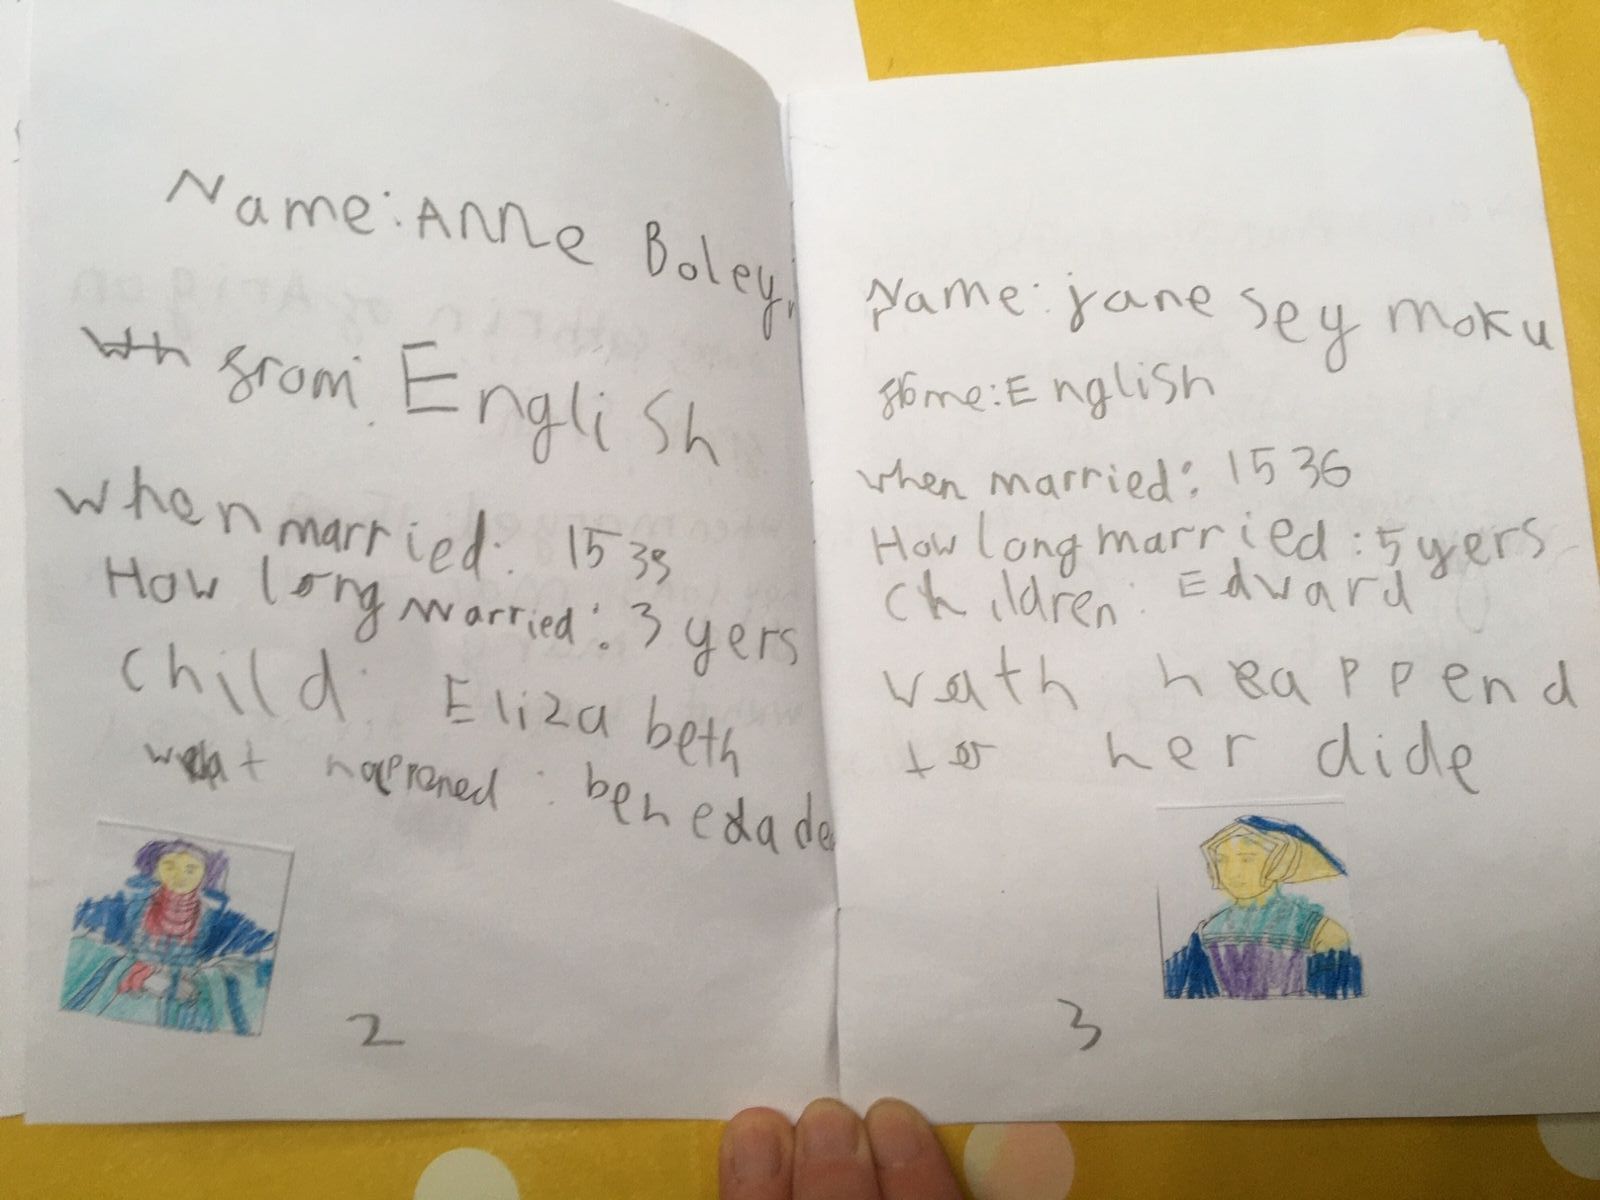 Name: Anne Boleyn
Wh from: English
when married: 1533
How long married: 3 yers
child: Elizabeth
what happened: behedade
2
Name: jane sey moku
frome: English
when married: 1536
How long married: 5 yers
children: Edward
wath heappend
to her dide
3